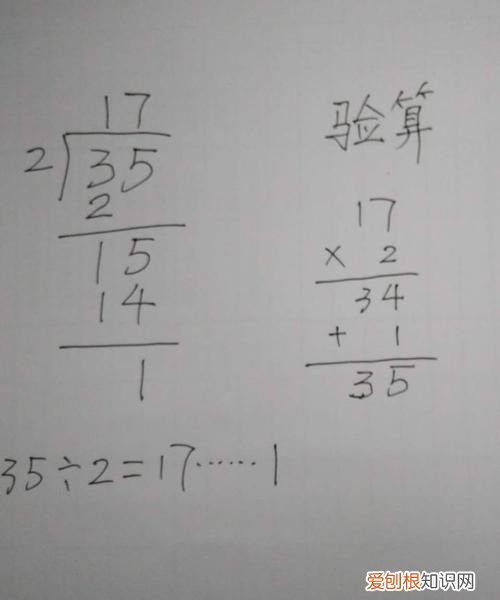 17
2 35
2
15
14
1
验算
17
× 2
34
+ 1
35
35÷2=17……1
爱刨根知识网